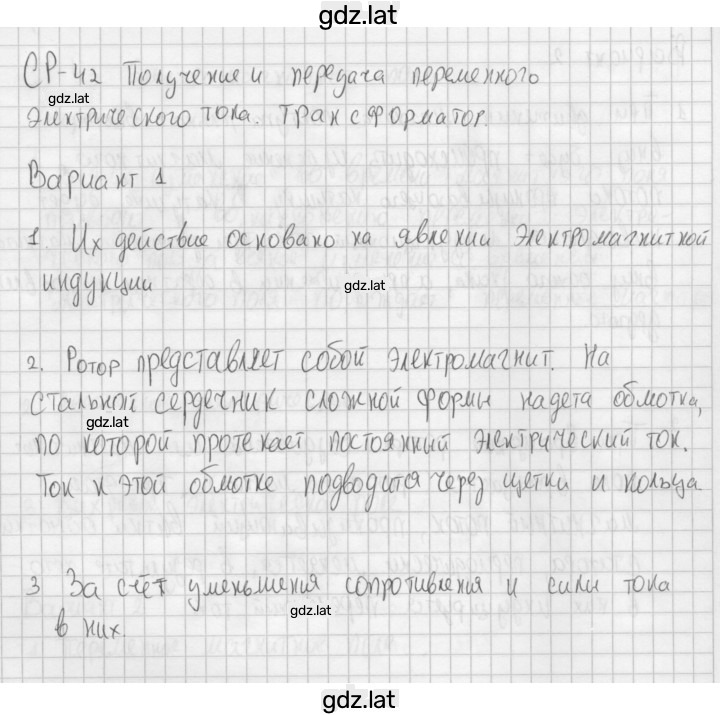 gdz.lat
СР-42 Получение и передача переменного
gdz.lat
электрического тока. Трансформатор.
Вариант 1
1. Их действие основано на явлении электромагнитной
индукции
gdz.lat
2. Ротор представляет собой электромагнит. На
стальной сердечник сложной формы надета обмотка,
gdz.lat
по которой протекает постоянный электрический ток.
Ток к этой обмотке подводится через щетки и кольца
3 За счёт уменьшения сопротивления и силы тока
gdz.lat
в них.
gdz.lat